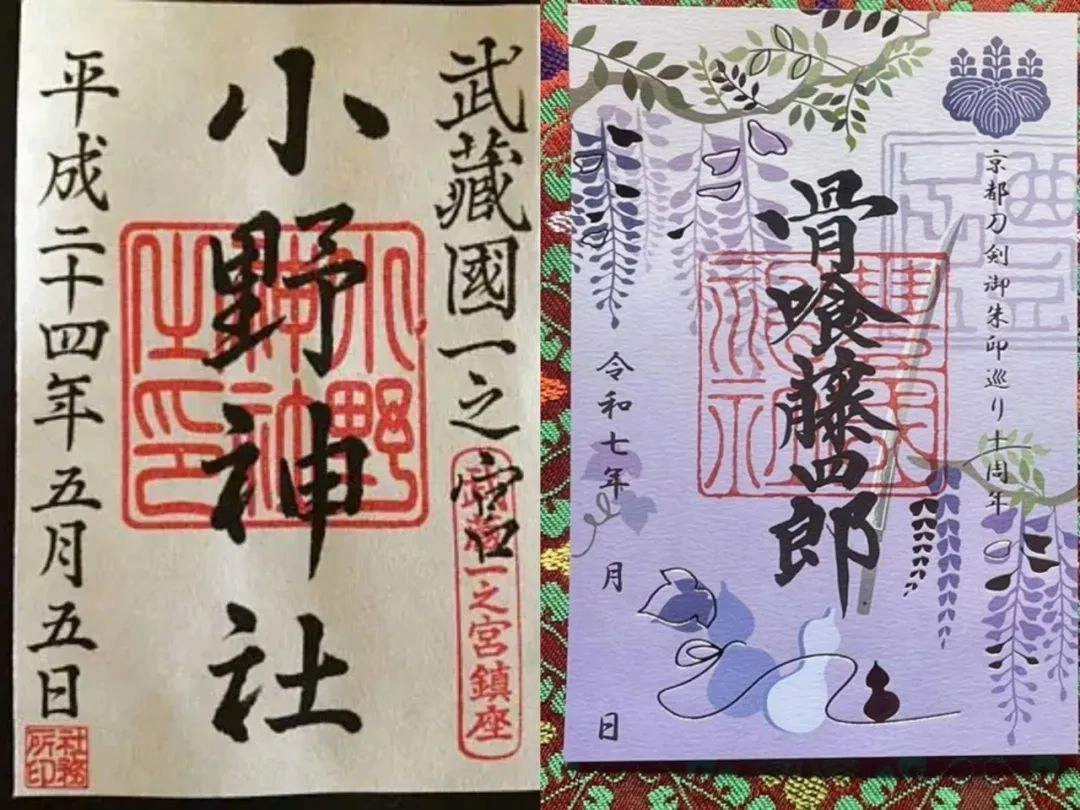 武藏國一之宮
武蔵一之宮鎮座
小野神社
小野神社之印
平成二十四年五月五日
社務所印
京都刀剣御朱印巡り十周年
骨喰藤四郎
令和七年 月 日